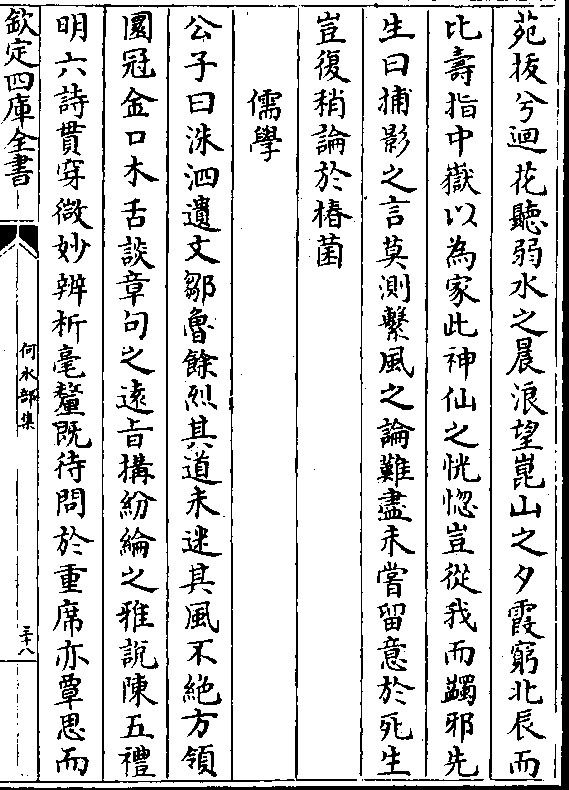 苑挨兮迴花聽弱水之晨浪望崑山之夕霞窮北辰而
比壽指中嶽以為家此神仙之恍惚豈從我而蠲邪先
生曰捕影之言莫測繫風之論難盡未嘗留意於死生
豈復稍論於椿菌
儒學
公子曰洙泗遺文鄒魯餘烈其道未迷其風不絕方領
圜冠金口木舌談章句之遠旨搆紛綸之雅說陳五禮
明六詩貫穿微妙辨析毫釐既待問於重席亦覃思而
欽定四庫全書
何水部集
三十八